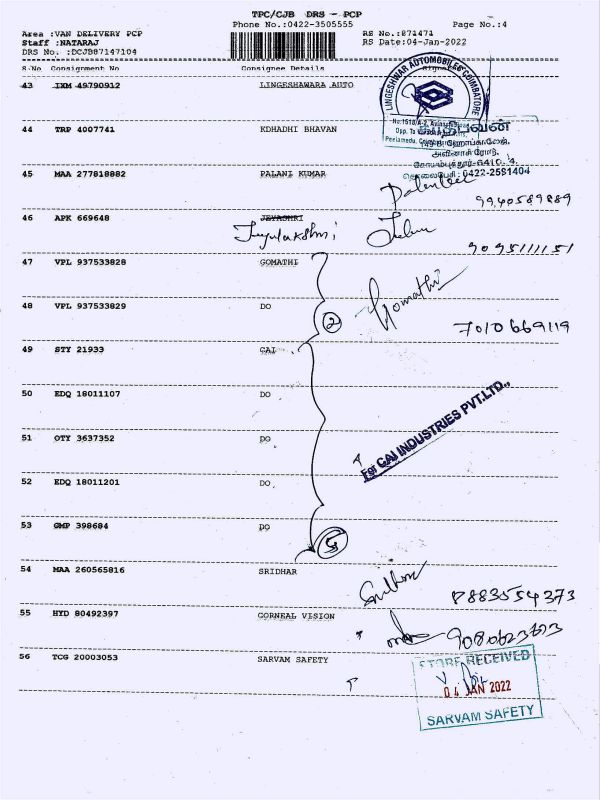 TPC/CJB DRS - PCP
Area :VAN DELIVERY PCP Phone No.:0422-3505555 RS No.:871471 Page No.:4
Staff :NATARAJ RS Date:04-Jan-2022
DRS No. :DCJB87147104
S.No Consignment No Consignee Details
43 IXM 49790912 LINGESHAWARA AUTO
LINGESHWAR AUTOMOBILES COIMBATORE
44 TRP 4007741 KDHADHI BHAVAN
அவினாசி ரோடு,
தொலைபேசி : 0422-2581404
45 MAA 277818882 PALANI KUMAR
9940589889
46 APK 669648 JEYASHRI
Jeyalakshmi
9095111151
47 VPL 937533828 GOMATHI
48 VPL 937533829 DO 2 Gomathi
7010669119
49 STY 21933 CAI
50 EDQ 18011107 DO
51 OTY 3637352 DO
For CAI INDUSTRIES PVT.LTD.,
52 EDQ 18011201 DO
53 GMP 398684 DO
5
54 MAA 260565816 SRIDHAR
Sridhar 8883554373
55 HYD 80492397 CORNEAL VISION
56 TCG 20003053 SARVAM SAFETY
STORE RECEIVED
04 JAN 2022
SARVAM SAFETY